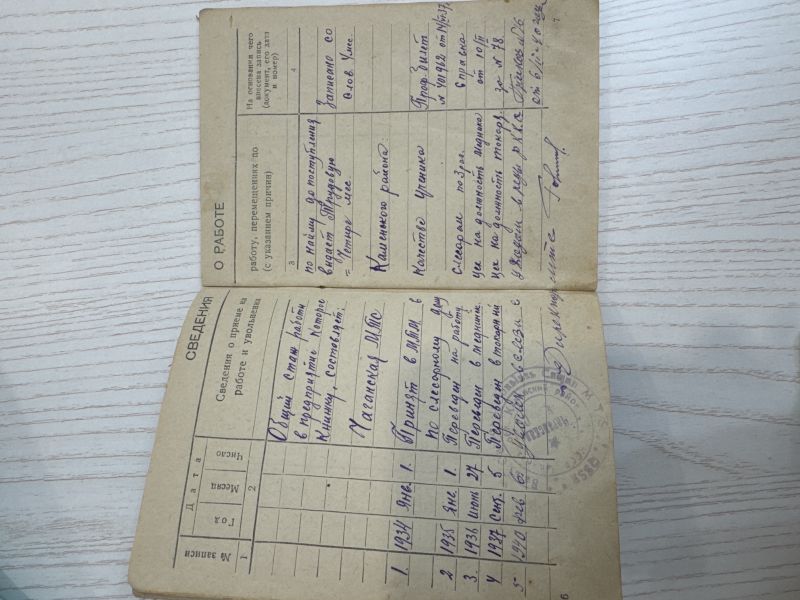 СВЕДЕНИЯ О РАБОТЕ
№ записи
Дата
Год
Месяц
Число
Сведения о приеме на работу, перемещениях по работе и увольнении (с указанием причин)
На основании чего внесена запись (документ, его дата и номер)
1 2 3 4
Общий стаж работы по найму до поступления Записано со
в предприятие которое выдает Трудовую слов
Книжку, составляет: = Четыре мес.
Чаганская МТС Каменского района:
1. 1934 Янв. 1. Принят в МТМ в качестве Ученика Проф. билет
по слесарному делу
2 1935 Янв. 1. Переведен на работу слесарем по 3 раз. Справка
3. 1936 Июнь 27 Переведен в медницкий цех на должность медника от 10/II
4 1937 Сент. 5 Переведен в токарный цех на должность токаря. за № 78.
5 1940 Фев 6 Уволен в связи с уходом в ряды РККА Приказ № 26
от 6/II-40 года
Директор МТС
6
7